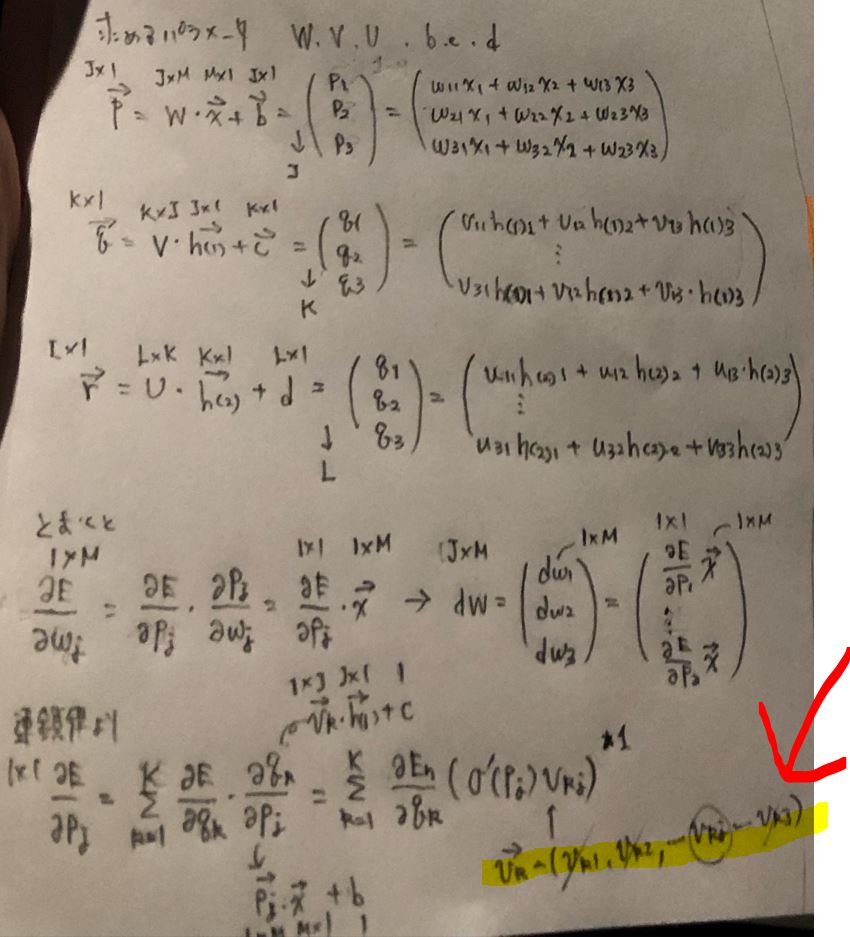 求めるパラメータ W.V.U.b.c.d
J×1 J×M M×1 J×1
p⃗ = W・x⃗ + b⃗ = (p1 p2 p3) = (w11x1 + w12x2 + w13x3
w21x1 + w22x2 + w23x3
w31x1 + w32x2 + w23x3)
↓
J
K×1 K×J J×1 K×1
q⃗ = V・h(1)⃗ + c⃗ = (q1 q2 q3) = (v11h(1)1 + v12h(1)2 + v13h(1)3
⋮
v31h(1)1 + v32h(1)2 + v13・h(1)3)
↓
K
L×1 L×K K×1 L×1
r⃗ = U・h(2)⃗ + d = (q1 q2 q3) = (u11h(2)1 + u12h(2)2 + u13・h(2)3
⋮
u31h(2)1 + u32h(2)2 + v33h(2)3)
↓
L
とおくと
1×M 1×1 1×M J×M 1×M 1×1 1×M
∂E/∂wj = ∂E/∂pj・∂pj/∂wj = ∂E/∂pj・x⃗ → dW = (dw1 dw2 dw3) = (∂E/∂p1 x⃗ ⋮ ∂E/∂pJ x⃗)
1×J J×1 1
連鎖律より v⃗k・h(1)⃗ + c
1×1 ∂E/∂pj = Σ K k=1 ∂E/∂qk・∂qk/∂pj = Σ K k=1 ∂En/∂qk (σ'(pj)vkj) *1
↓ ↑
v⃗k = (vk1, vk2, … vkj … vkJ)
p⃗j・x⃗ + b
1×M M×1 1